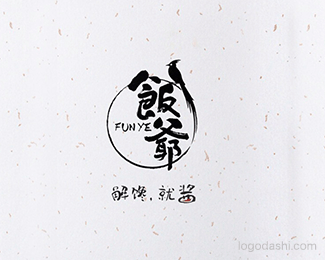 飯爺
FUNYE
解馋，就酱
logodashi.com